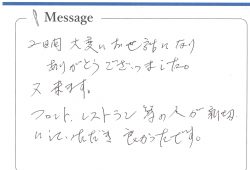 Message
2日間 大変お世話になり
ありがとうございました。
又 来ます。
フロント、レストラン 等の人が 親切
にしていただき 良かったです。